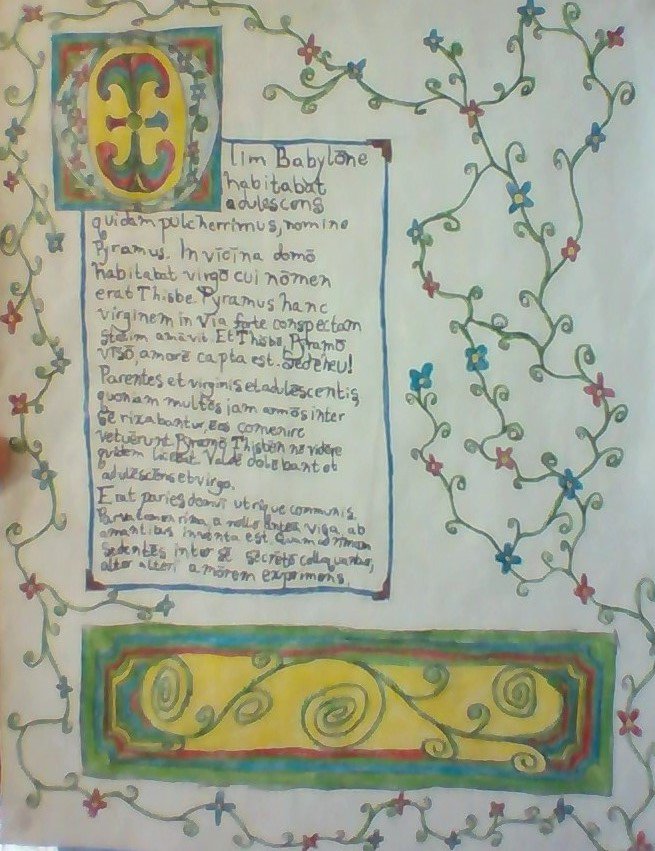 Olim Babylōne
habitabat
adulescens
quidam pulcherrimus, nomine
Pyramus. In vīcīna domō
habitabat virgō cui nōmen
erat Thisbe. Pyramus hanc
virginem in via forte conspectam
statim amāvit. Et Thisbē, Pyramō
vīsō, amore capta est. Sed eheu!
Parentes et virginis et adulescentis,
quoniam multōs jam annōs inter
sē rixabantur, eos convenire
vetuērunt. Pyramō Thisbēn nē vidēre
quidem licebat. Valdē dolēbant et
adulescēns et virgo.
Erat pariēs domuī utrīque communis.
Parva tamen rima, a nullo antea visa, ab
amantibus inventa est. Quam ad rimam
sedentēs inter sē sēcrētō colloquēbantur,
alter alterī amōrem exprimens.